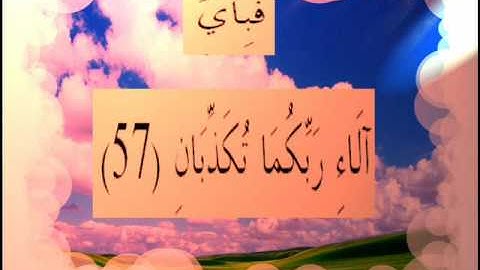 فَبِأَيِّ
آلَاءِ رَبِّكُمَا تُكَذِّبَانِ (57)